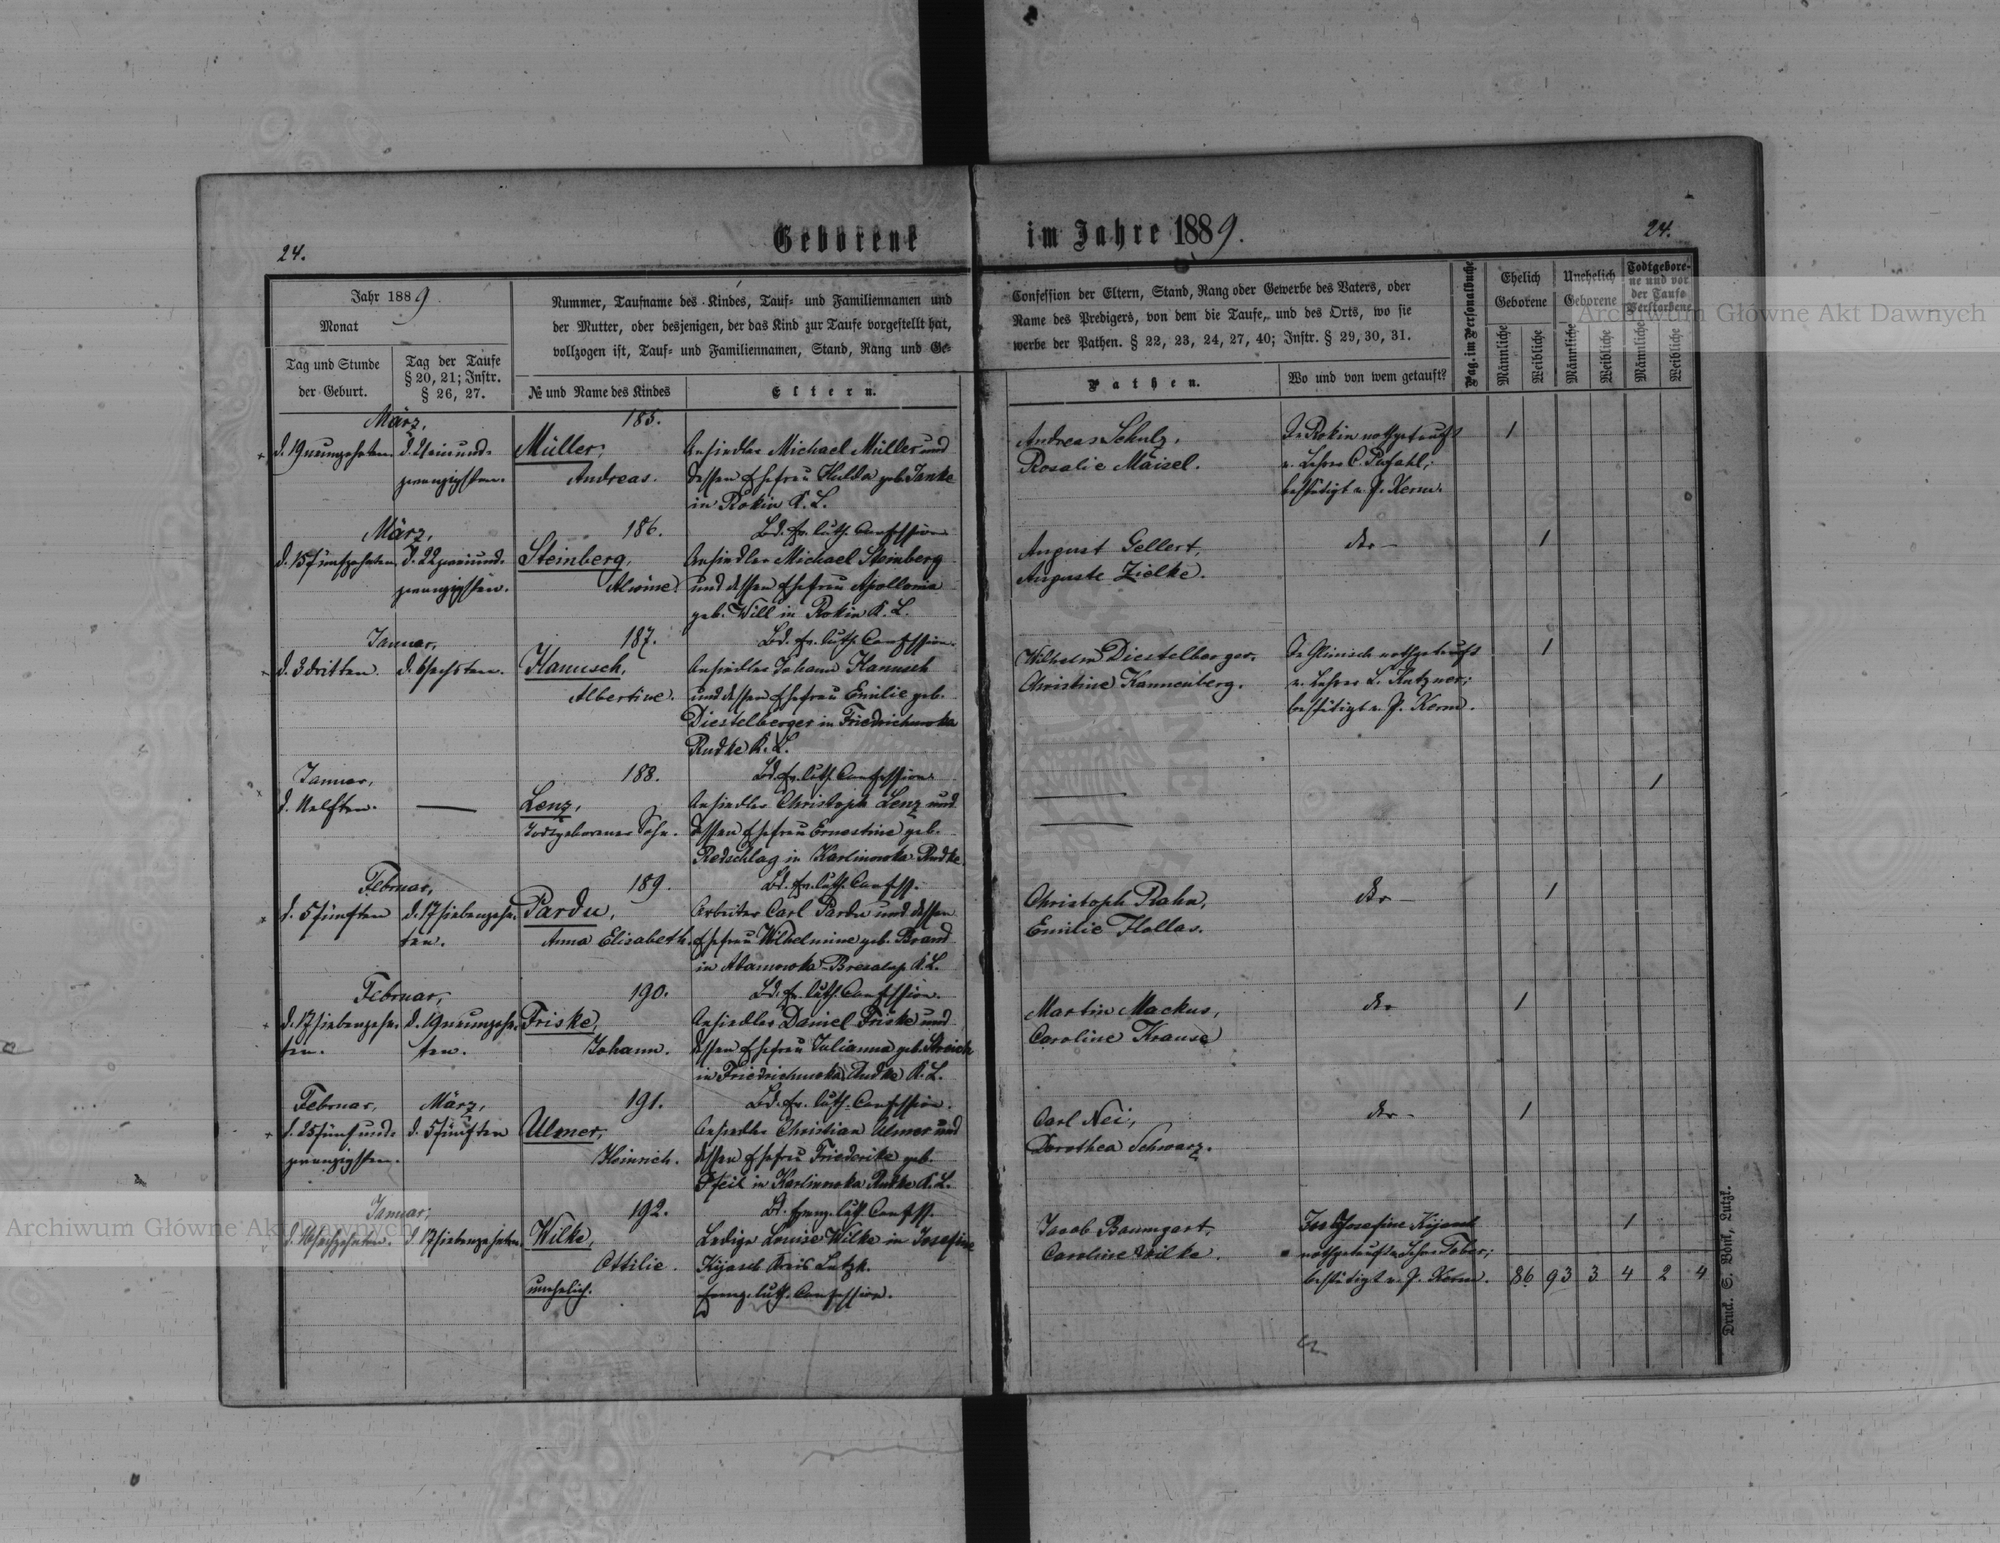 24.
Geborene im Jahre 1889.
24.
Jahr 1889
Monat
Tag und Stunde
der Geburt.
Tag der Taufe
§ 20, 21; Instr.
§ 26, 27.
Nummer, Taufname des Kindes, Tauf- und Familiennamen und
der Mutter, oder desjenigen, der das Kind zur Taufe vorgestellt hat,
vollzogen ist, Tauf- und Familiennamen, Stand, Rang und Ge-
№ und Name des Kindes
Eltern.
Confession der Eltern, Stand, Rang oder Gewerbe des Vaters, oder
Name des Predigers, von dem die Taufe, und des Orts, wo sie
werbe der Pathen. § 22, 23, 24, 27, 40; Instr. § 29, 30, 31.
Pathen.
Wo und von wem getauft?
Pag. im Personalbuche
Ehelich
Geborene
Unehelich
Geborene
Todtgebore-
ne und vor
der Taufe
Verstorbene
Männliche
Weibliche
Männliche
Weibliche
Männliche
Weibliche
Archiwum Główne Akt Dawnych
März,
185.
d. 19 neunzehnten
d. 21 einund-
zwanzigsten.
Müller,
Andreas.
Ansiedler Michael Müller und
dessen Ehefrau Hulda geb. Janke
in Rokin K. L.
Bd. ev. luth. Confession
Andreas Schulz,
Rosalie Maisel.
In Rokin nothgetauft
v. Lehrer C. Pufahl;
bestätigt v. P. Kerm.
1
März,
186.
d. 15 fünfzehnten
d. 22 zweiund-
zwanzigsten.
Steinberg,
Alwine.
Ansiedler Michael Steinberg
und dessen Ehefrau Apollonia
geb. Will in Rokin K. L.
Bd. ev. luth. Confession.
August Gellert,
Auguste Zielke.
1
Januar,
187.
d. 3 dritten.
d. 6 sechsten.
Hanusch,
Albertine.
Ansiedler Johann Hanusch
und dessen Ehefrau Emilie geb.
Diestelberger in Friedrichowka
Rudke K. L.
Bd. ev. luth. Confession.
Wilhelm Diestelberger,
Christine Kannenberg.
nothgetauft
v. Lehrer L. Ratzner;
bestätigt v. P. Kerm.
1
Januar,
188.
d. 11 elften.
Lenz,
Todtgeborener Sohn.
Ansiedler Christoph Lenz und
dessen Ehefrau Ernestine geb.
Redschlag in Karlinowka Rudke.
Bd. ev. luth. Confess.
1
Februar,
189.
d. 5 fünften
d. 17 siebenzehn-
ten.
Pardu,
Anna Elisabeth.
Arbeiter Carl Pardu und dessen
Ehefrau Wilhelmine geb. Brand
in Adamowka K. L.
Bd. ev. luth. Confession.
Christoph Rahn,
Emilie Hollas.
1
Februar,
190.
d. 17 siebenzehn-
ten.
d. 19 neunzehn-
ten.
Friske,
Johann.
Ansiedler Daniel Friske und
dessen Ehefrau Julianna geb. Streich
in Friedrichowka Rudke K. L.
Bd. ev. luth. Confession.
Martin Mackus,
Caroline Krause
1
Februar,
März,
191.
d. 25 fünfund-
zwanzigsten.
d. 5 fünften
Ulmer,
Heinrich.
Ansiedler Christian Ulmer und
dessen Ehefrau Friederike geb.
Pfeil in Karlinowka Rudke K. L.
Bd. evang. luth. Confess.
Carl Nei,
Dorothea Schwarz.
1
Januar,
192.
d. 16 sechzehnten.
d. 17 siebenzehnten.
Wilke,
Ottilie.
unehelich.
Ledige Louise Wilke in Josefine
Kijasch Kreis Lutzk.
evang. luth. Confession.
Jacob Baumgart,
Caroline Wilke.
Josefine Kijasch
nothgetauft v. Lehrer Tober;
bestätigt v. P. Kerm.
1
86 93 3 4 2 4
Druck. S. Bönt, Lutzk.
Archiwum Główne Akt Dawnych